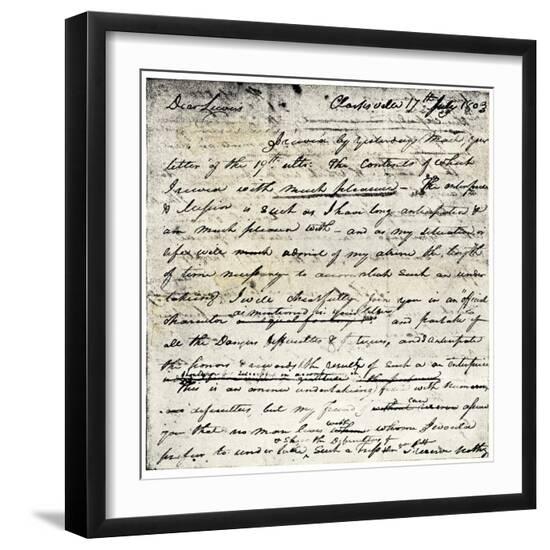 Dear Lewis Clarksville 17th July 1803
I receved by yesterdays Mail your
letter of the 19th ulto: the Contents of which
I receved with much pleasure – The enterprise
& Mission is such as I have long anticipated &
am much pleased with – and as my situation in
life will admit of my absence the length
of time necessary to accomplish such an under
taking I will chearfully join you in an "official
as mentioned in your letter
Charrector and partake of
all the Dangers Difficulties & fatigues, and I anticipate
the honors & rewards of the result of such an enterprise
This is an immence undertaking fraited with numerous
difficulties, but my friend I can assure
you that no man lives with whome I would
& Share the Difficulties of
prefur to undertake Such a trip